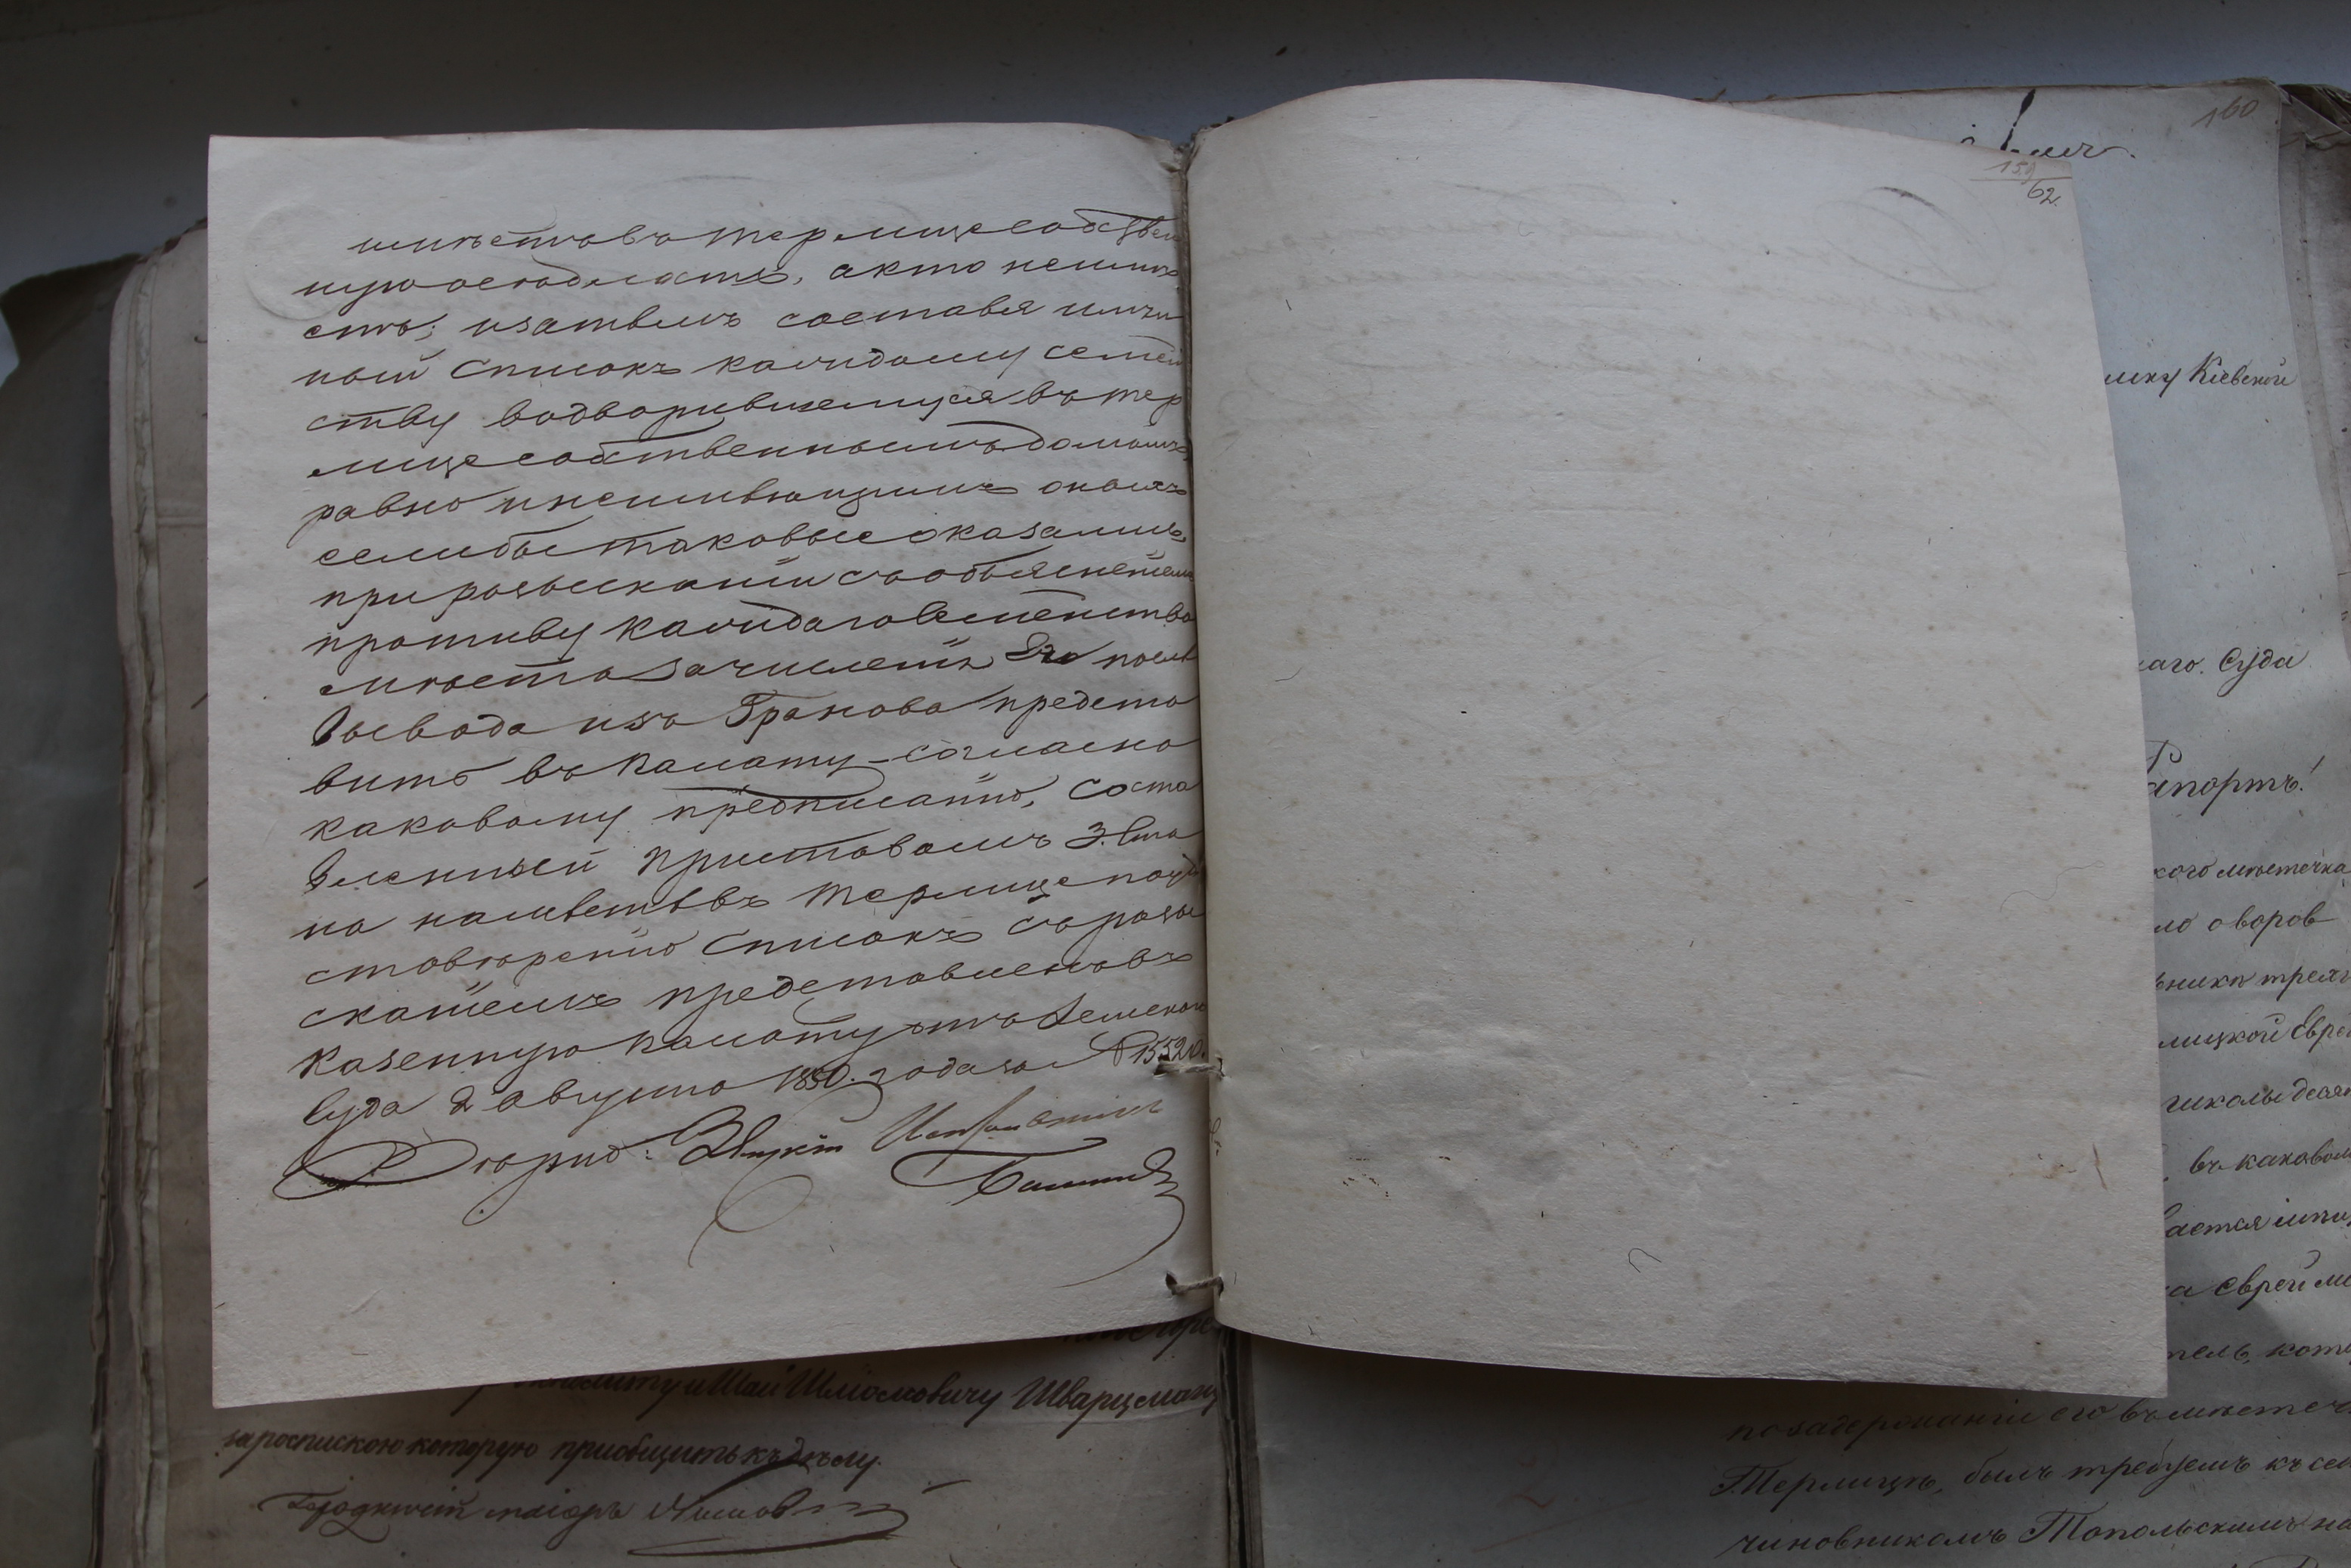 имѣетъ въ Терлице собствен
ную оседлость, а кто неимѣ
етъ; и затѣмъ составя имян
ный списокъ каждому семей
ству водворившемуся въ Тер
лице собственнымъ домомъ,
равно и неимѣющимъ оныхъ
еслибы таковые оказались
при розысканіи съ объясненіемъ
противу каждаго семейства
мѣста зачисленія Его послѣ
вывода изъ Гранова предста
вить въ палату – согласно
каковому предписанію, соста
вленный Приставомъ 3. Ста
на на мѣстѣ въ Терлице по уд
стовѣренію списокъ съ розы
сканіемъ представленъ въ
Казенную палату отъ Земскаго
Суда 2 августа 1850. года за № 15520.
Земскій Исправникъ
159
62.
160
нику Кіевской
наго. Суда
Рапортъ!
кого мѣстечка
ло о воров
ьника трехъ
лицкой Евре
школы десят
въ каковом
вается
а Еврей
тель, кото
по задержаніи его въ мѣстеч
Терлицѣ, былъ требуемъ къ
чиновникомъ Топольскимъ на
и Шаи Шліомовичу Шварцману
за роспискою которую пріобщить къ дѣлу.
Городничій маіоръ